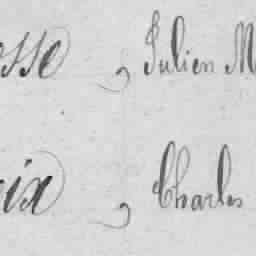 esse, Julien M
ix, Charles